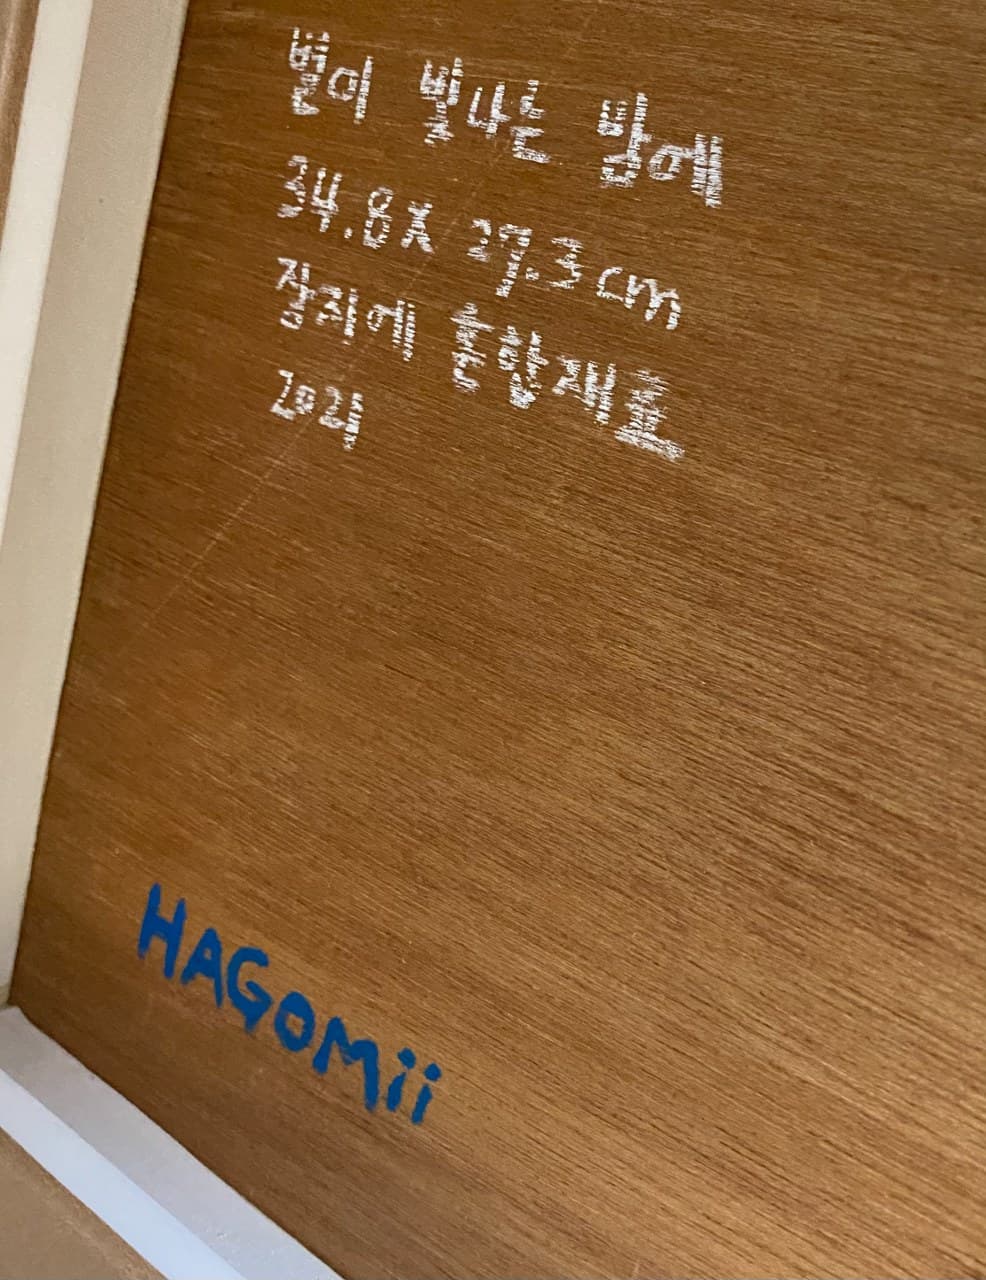 별이 빛나는 밤에
34.8 x 27.3 cm
장지에 혼합재료
2021
HAGOMii